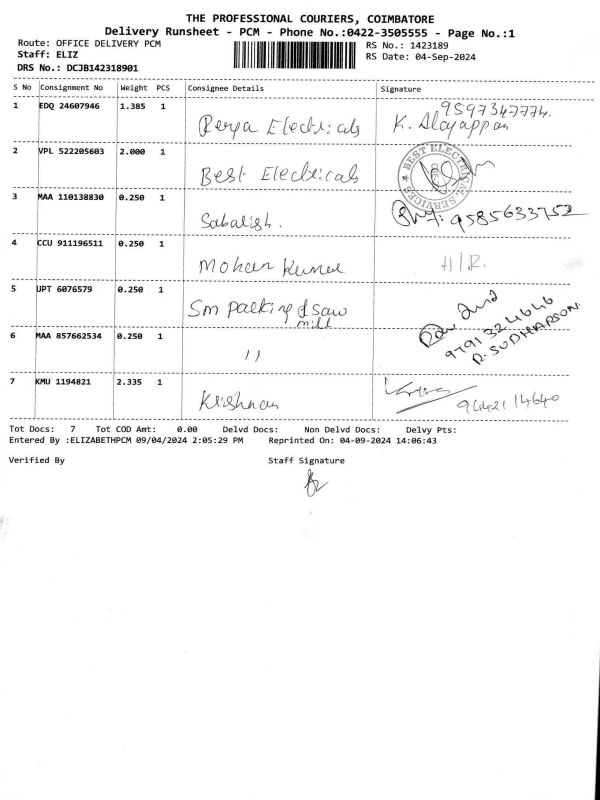 THE PROFESSIONAL COURIERS, COIMBATORE
Delivery Runsheet - PCM - Phone No.:0422-3505555 - Page No.:1
Route: OFFICE DELIVERY PCM
RS No.: 1423189
Staff: ELIZ
RS Date: 04-Sep-2024
DRS No.: DCJB142318901
S No Consignment No Weight PCS Consignee Details Signature
1 EDQ 24607946 1.385 1 Electricals K. Alagappan 9597347774.
2 VPL 522205603 2.000 1 Best Electricals BEST ELECTRICAL SERVICES
3 MAA 110138830 0.250 1 Sabarish. 9585633752
4 CCU 911196511 0.250 1 Mohan Kumar H/R.
5 UPT 6076579 0.250 1 Sm packing & saw mill
9791324646
R. SUDHARSON.
6 MAA 857662534 0.250 1 11
7 KMU 1194821 2.335 1 Krishnan 9442114640
Tot Docs: 7 Tot COD Amt: 0.00 Delvd Docs: Non Delvd Docs: Delvy Pts:
Entered By :ELIZABETHPCM 09/04/2024 2:05:29 PM Reprinted On: 04-09-2024 14:06:43
Verified By Staff Signature